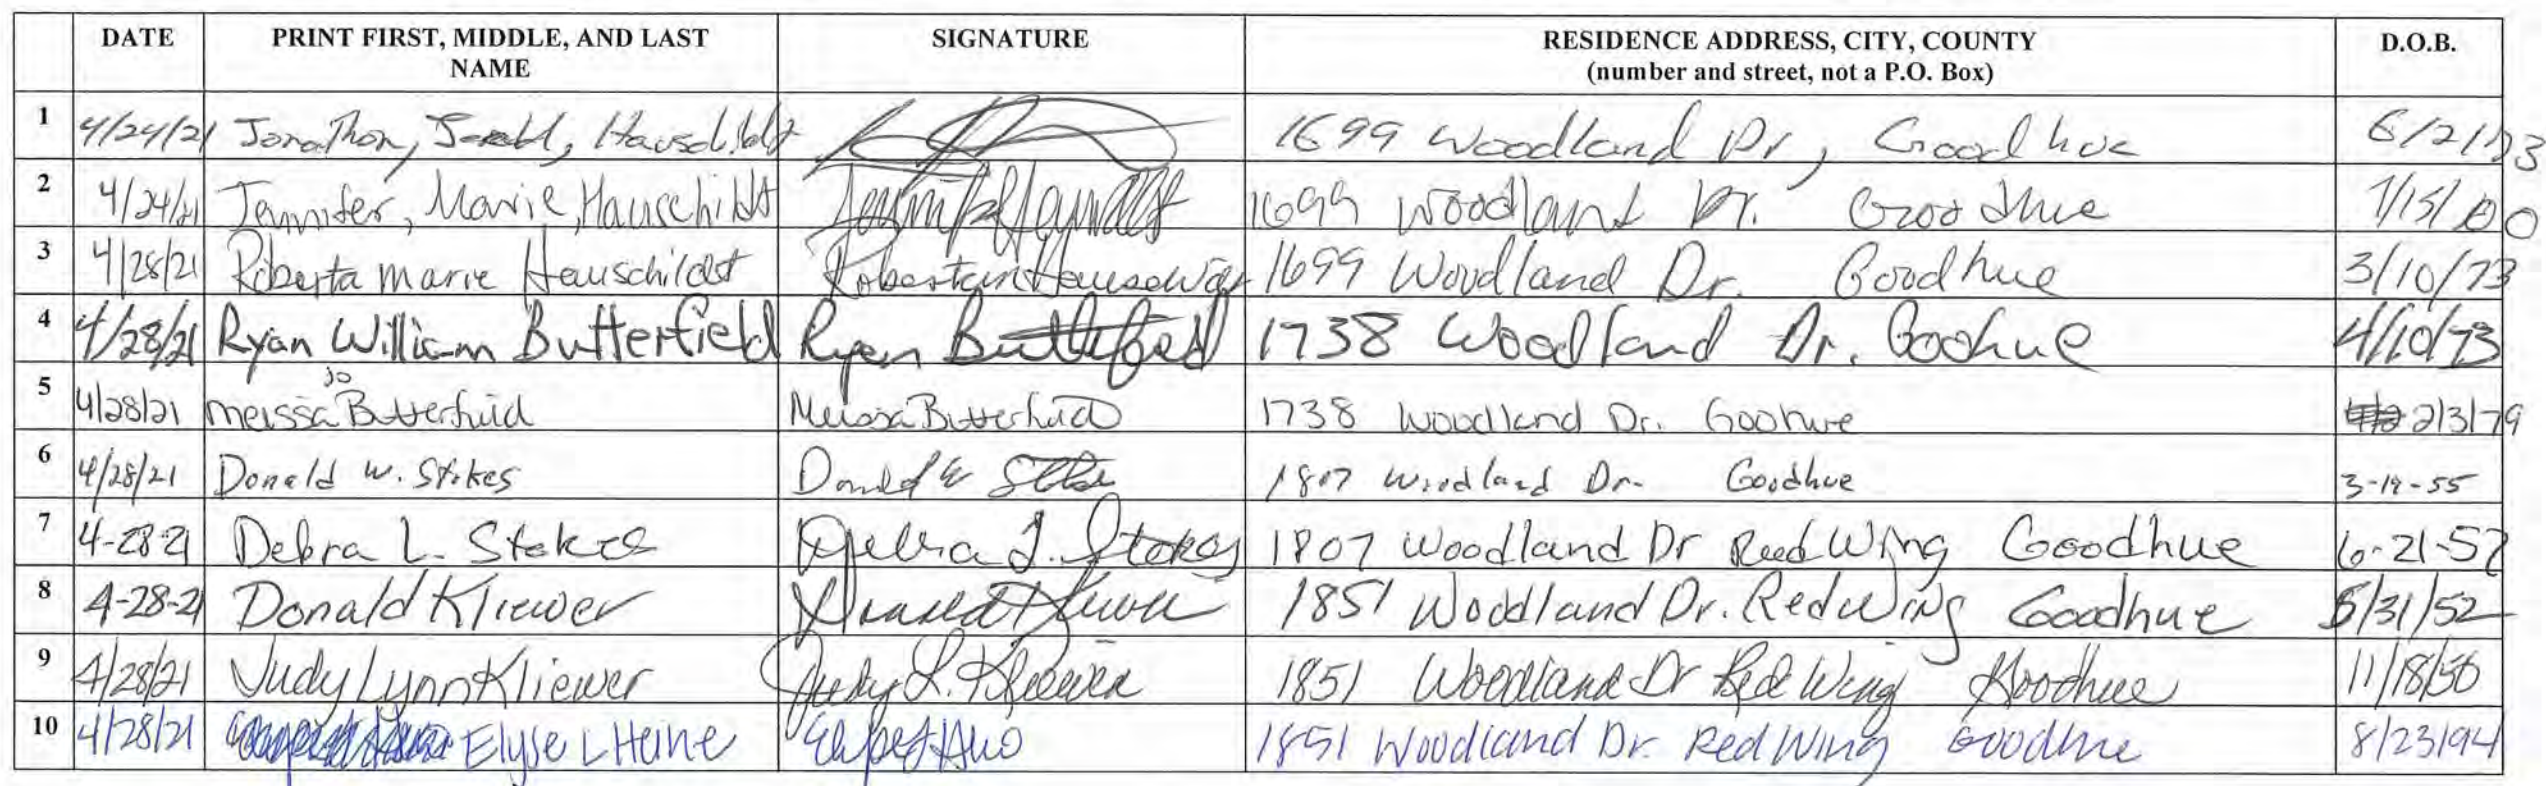 DATE PRINT FIRST, MIDDLE, AND LAST NAME SIGNATURE RESIDENCE ADDRESS, CITY, COUNTY (number and street, not a P.O. Box) D.O.B.
1 4/24/21 Jonathon, Hauschildt 1699 Woodland Dr, Goodhue 6/2/73
2 4/24/21 Jennifer, Marie, Hauschildt 1699 Woodland Dr. Goodhue 1/15/00
3 4/28/21 Roberta Marie Hauschildt 1699 Woodland Dr. Goodhue 3/10/73
4 4/28/21 Ryan William Butterfield Ryan Butterfield 1738 Woodland Dr. Goohue 4/10/73
5 4/28/21 Meissa jo Butterfuid 1738 Woodland Dr. Goohue 2/3/79
6 4/28/21 Donald W. Stokes Donald W 1807 Woodland Dr. Goodhue 3-19-55
7 4-28-21 Debra L. Stokes Debra L. Stokes 1807 Woodland Dr Red Wing Goodhue 6-21-57
8 4-28-21 Donald Kliewer Donald Kliewer 1851 Woodland Dr. Red Wing Goodhue 5/31/52
9 4/28/21 Judy Lynn Kliewer Judy L. Kliewer 1851 Woodland Dr Red Wing Goodhue 11/18/50
10 4/28/21 Elyse L Heine 1851 Woodland Dr. Red Wing Goodhue 8/23/94